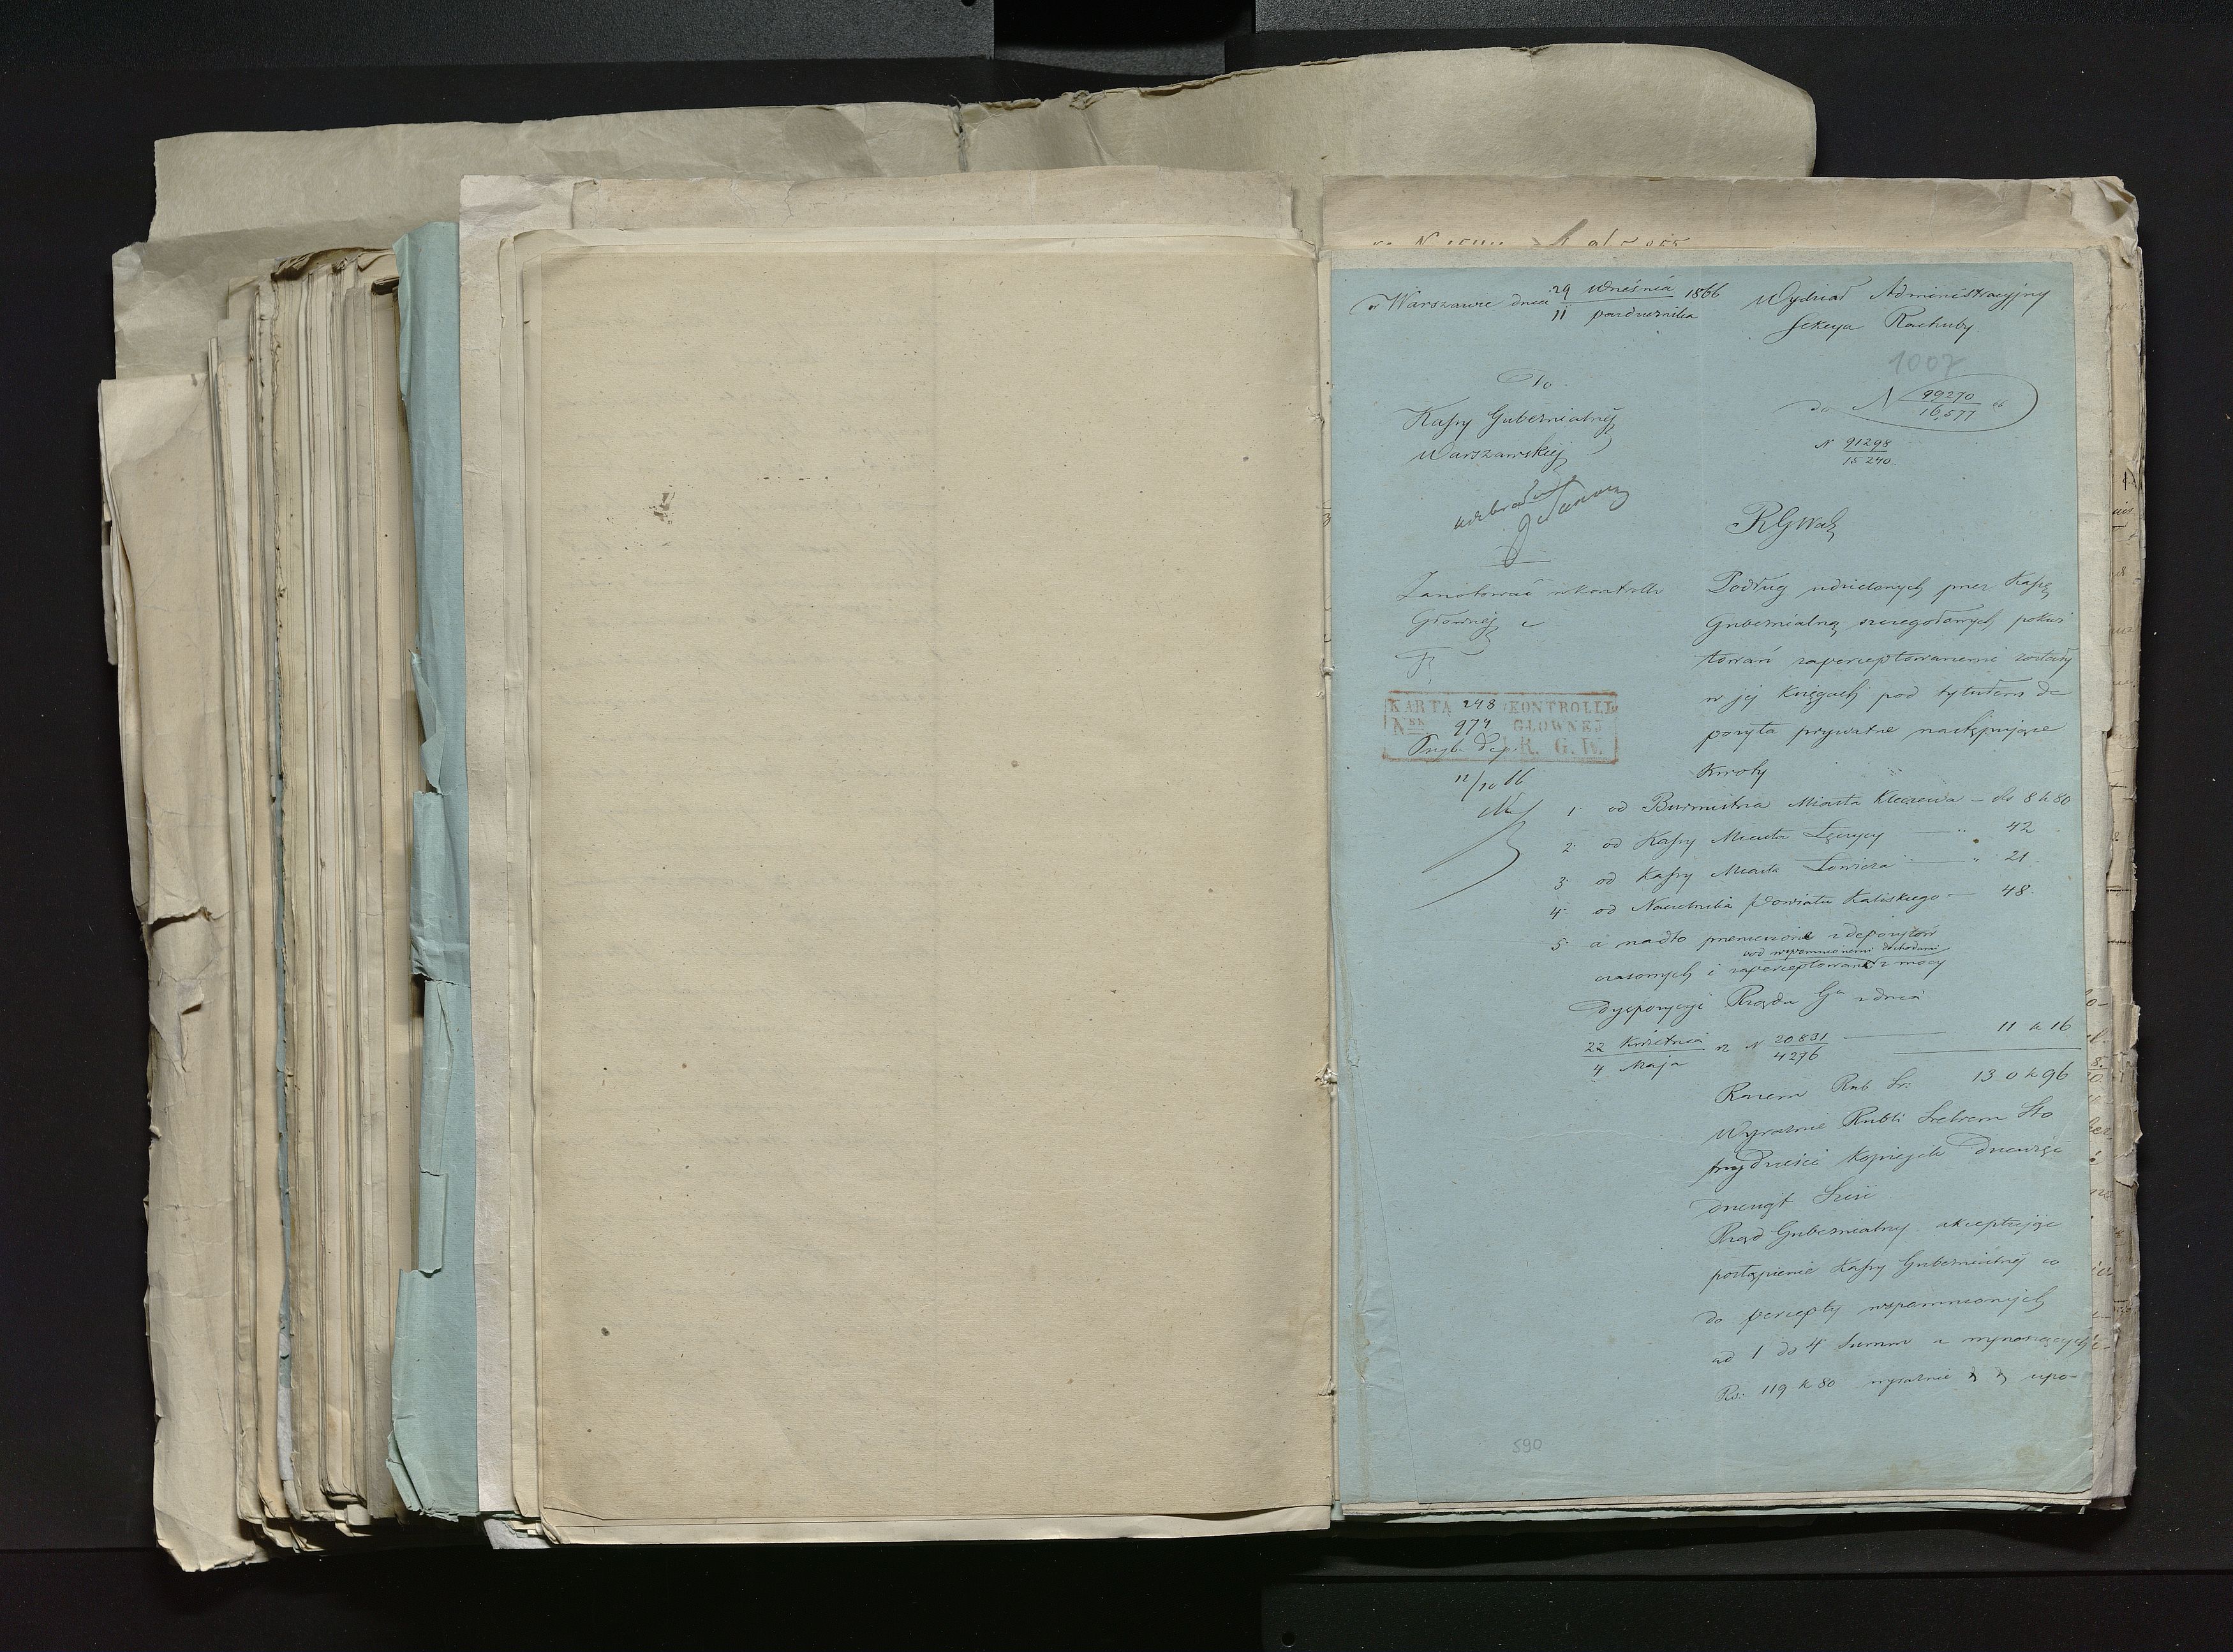 w Warszawie dnia 29 Września / 11 października 1866
Wydział Administracyjny
Sekcya Rachuby
1007
Do
Kassy Gubernialnéj
Warszawskiéj
do N 99270 / 16,577 66
N 91298 / 15240.
RGWa
Zanotować w kontrolli
Głownéj
KARTA 248 KONTROLLI
N 974 GŁOWNEJ
dep. R. G. W.
12/10 66
Podług udzielonych przez Kassę
Gubernialną szczegołowych pokwi
towań zaperceptowanemi zostały
w jej księgach pod tytułem de
pozyta prywatne następujące
Kwoty
1. od Burmistrza Miasta Kleczewa – Rs 8 k 80
2. od Kassy Miasta Łęczycy — " 42
3. od Kassy Miasta Łowicza — " 21.
4. od Naczelnika Powiatu Kaliskiego — 48.
5. a nadto przeniesione z depozytów
pod wspomnionemi dochodami
czasowych i zaperceptowane z mocy
dyspozycyi Rządu Gu z dnia
22 Kwietnia / 4 Maja N 20831 / 4276 — 11 k 16
Razem Rub Sr: 130 k 96
Wyraźnie Rubli Srebrem Sto
trzydzieści kopiejek Dziewięć
dziesiąt Sześć
Rząd Gubernialny akceptując
postąpienie Kassy Gubernialnéj co
do percepty wspomnionych
od 1 do 4 Summ a wynoszących
Rs: 119 k 80 wyraźnie upo-
590